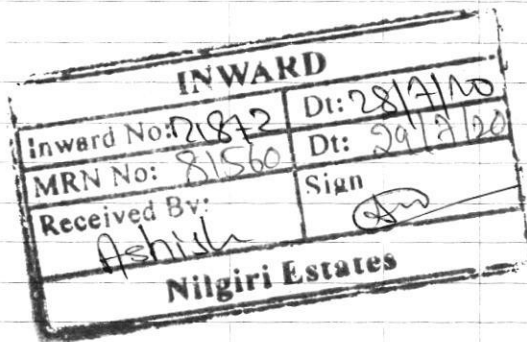 INWARD
Inward No: 21872 Dt: 28/7/20
MRN No: 81560 Dt: 29/7/20
Received By: Sign
Ashish
Nilgiri Estates